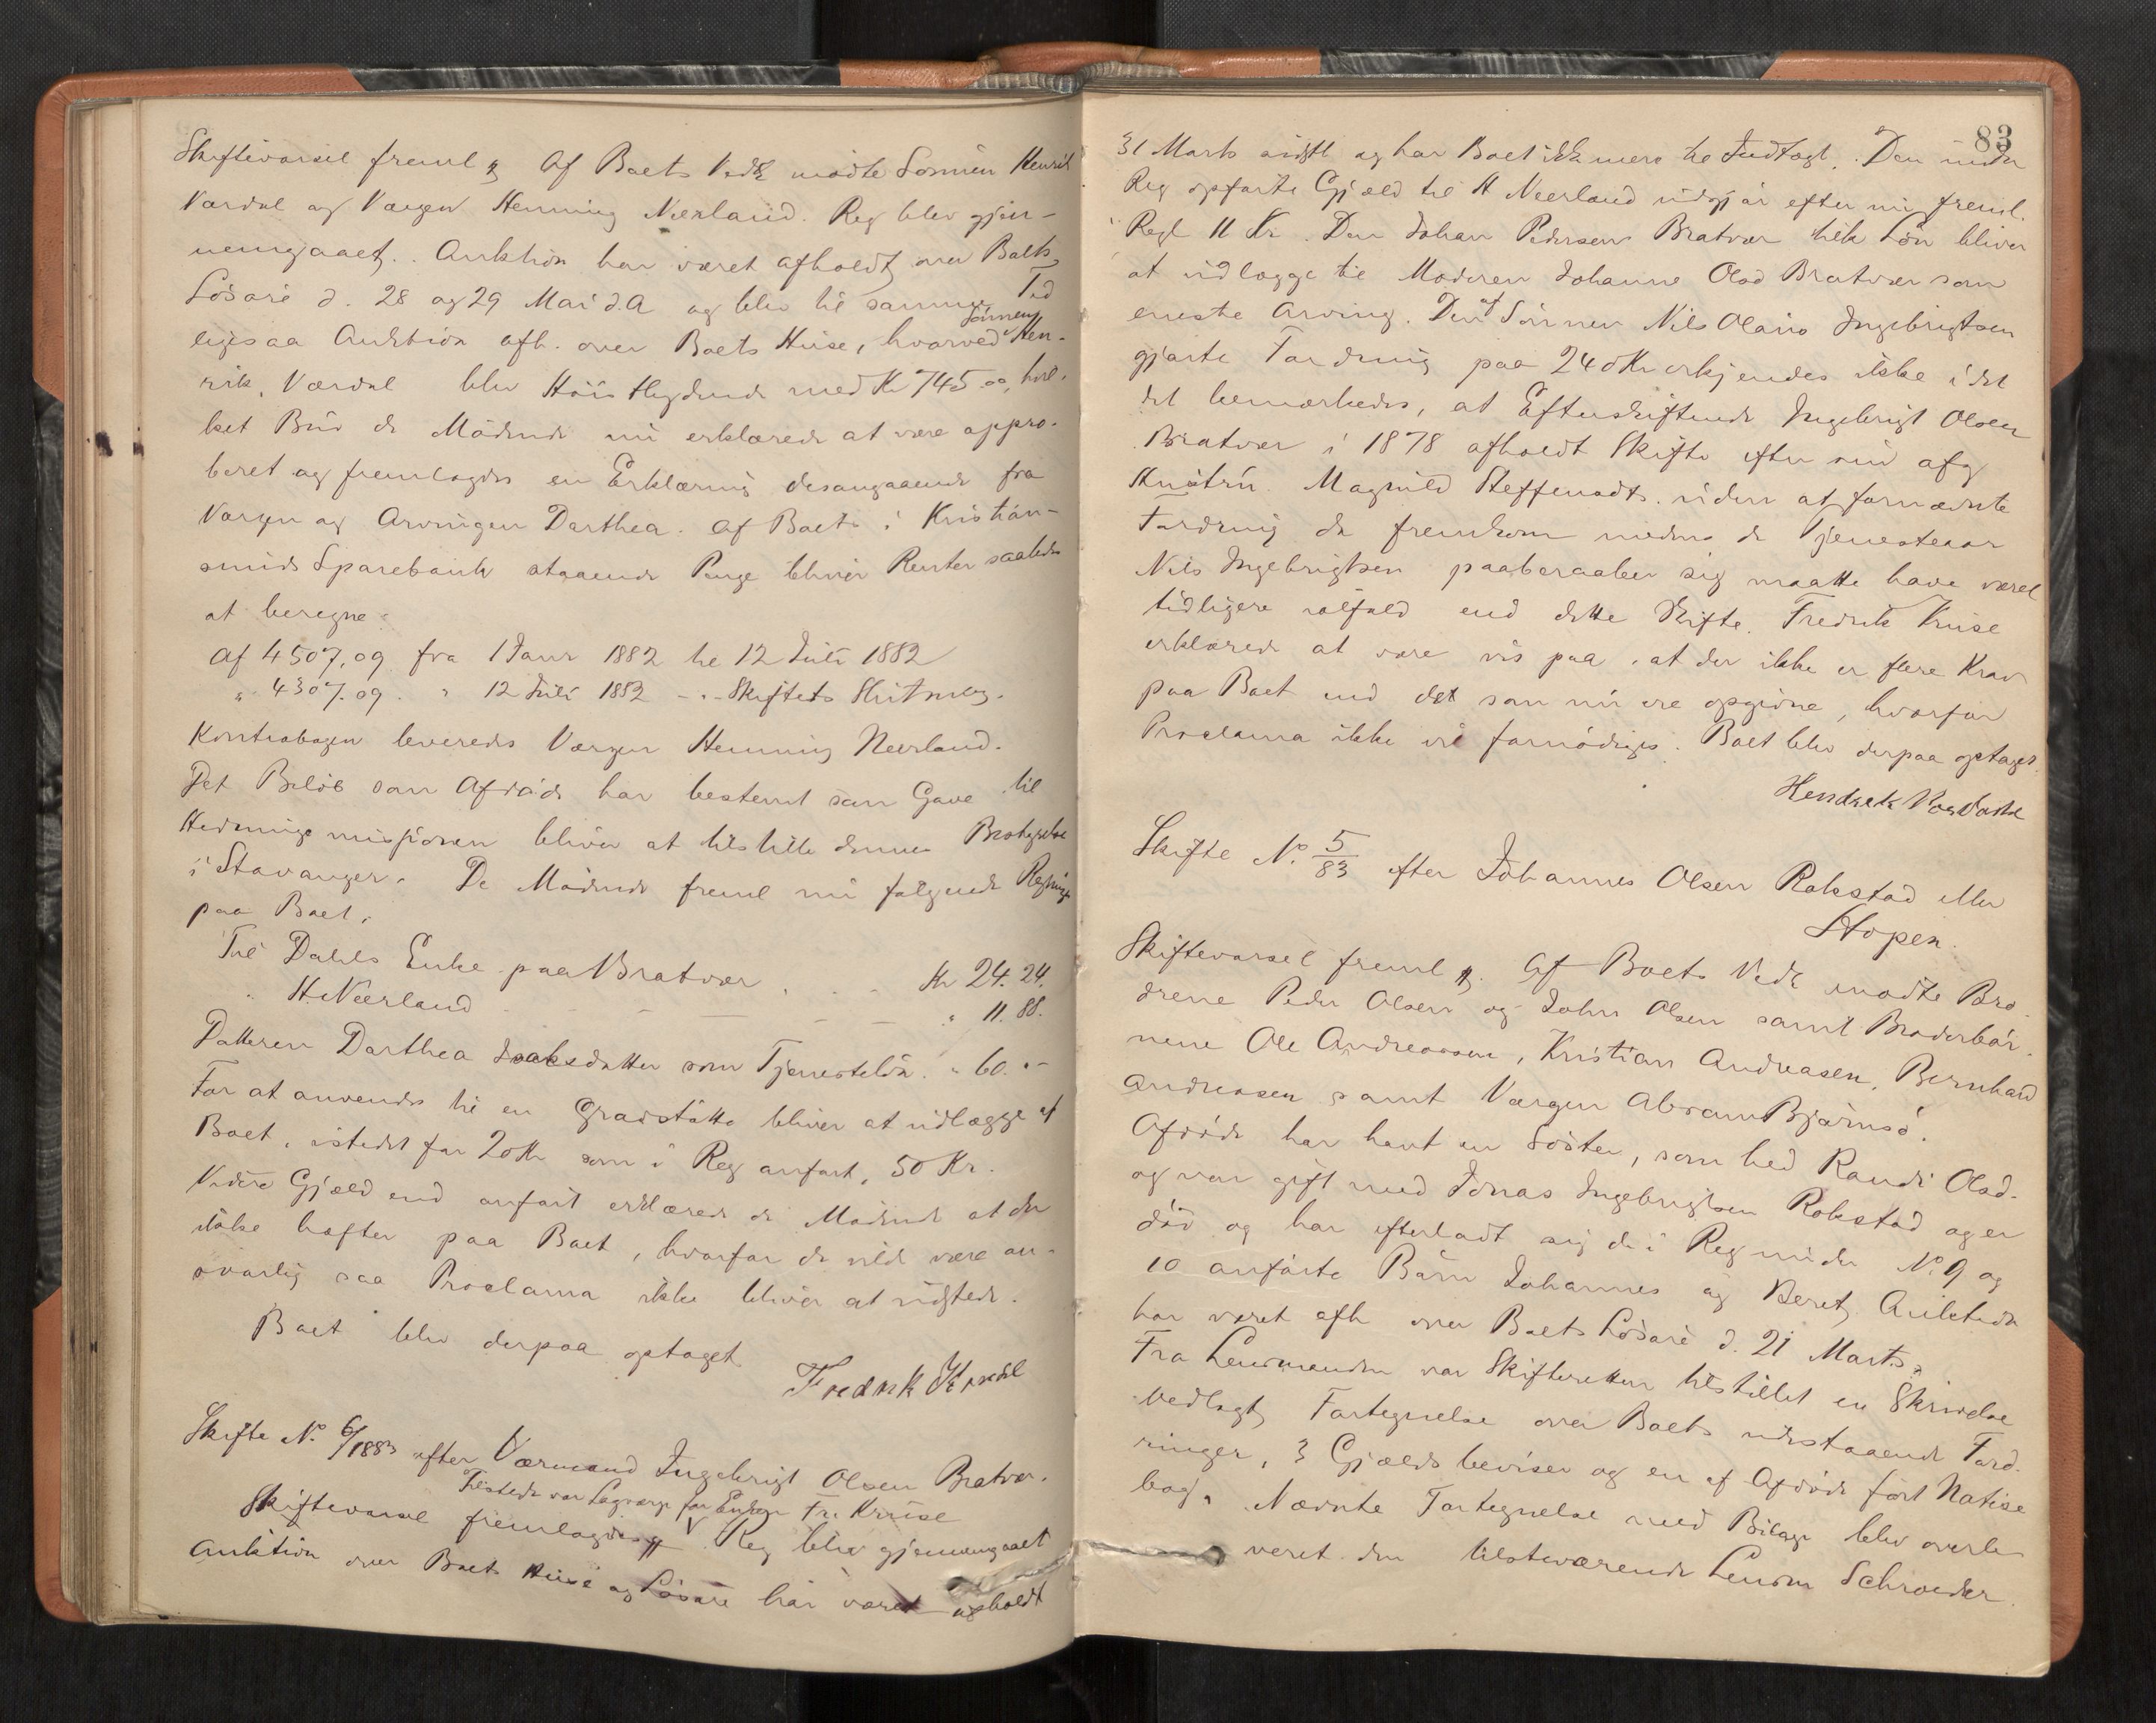 Skiftevarsel freml. Af Boets Vedk mødte Sønnen Henrik
Værdal og Værgen Henning Neerland. Reg blev gjen-
nemgaaet. Auktion har været afholdt over Boets
Løsøre d. 28 og 29 Mai d. A og blev til samme Tid
ligesaa Auktion afh. over Boets Huse, hvorved Sønnen Hen-
rik Værdal blev Høistbydende med Kr 745.00, hvil-
ket Bud de Mødende nu erklærede at være appro-
beret og fremlagdes en Erklæring desangaaende fra
Værgen og Arvingen Darthea. Af Boets i Kristian-
sunds Sparebank staaende Penge bliver Renter saaledes
at beregne:
Af 4507,09 fra 1 Janr 1882 til 12 Juli 1882
" 4307.09. " 12 Juli 1882 - " - Skiftets Slutning.
Kontrabogen leveredes Værgen Henning Neerland.
Det Beløb som Afdøde har bestemt som Gave til
Hedningemissionen bliver at tilstille dennes Bestyrelse
i Stavanger. De Mødende freml nu følgende Regninger
paa Boet.
Til Dahls Enke paa Bratvær . . - Kr 24.24.
" H Neerland - - - - - " 11.88.
Datteren Darthea Isaksdatter som Tjenesteløn . " 60. "-
For at anvendes til en Gravstøtte bliver at udlægge af
Boet, istedet for 20 Kr som i Reg anført, 50 Kr.
Videre Gjæld end anført erklærede de Mødende at der
ikke hæfter paa Boet, hvorfor de vilde være an-
svarlig saa Proclama ikke bliver at udstede.
Boet blev derpaa optaget
Fredrik
Skifte No. 6/1883 efter Værmand Ingebrigt Olsen Bratvær.
Tilstede var Lagværge for Enken Fr. Kruse
Skiftevarsel fremlagdes V Reg blev gjennemgaaet
Auktion over Boets Huse og Løsøre har været afholdt
83
31 Marts sidstl og har Boet ikke mere til Indtægt. Den under
Reg opførte Gjæld til H Neerland udgjør efter nu freml.
Regl 11 Kr. Den Johan Pedersen Bratvær tilk Løn bliver
at udlægge til Moderen Johanne Olsd Bratvær som
eneste Arving. Den af Sønnen Nils Olaus Ingebrigtsen
gjorte Fordring paa 240 Kr erkjendes ikke idet
det bemærkedes, at Efterskiftende Ingebrigt Olsen
Bratvær i 1878 afholdt Skifte efter sin afg
Hustru Magnild Steffensdt. uden at fornævnte
Fordring da fremkom medens de Tjenesteaar
Nils Ingebrigtsen paaberaaber sig maatte have været
tidligere ialfald end dette Skifte. Fredrik Kruse
erklærede at være vis paa, at der ikke er flere Krav
paa Boet end det som nu ere opgivne, hvorfor
Proclama ikke vil fornødiges. Boet blev derpaa optaget.
Skifte No. 5/83 efter Johannes Olsen Rokstad eller
Hopen.
Skiftevarsel freml. Af Boets Vedk mødte Brø-
drene Peder Olsen og John Olsen samt Broderbør-
nene Ole Andreassen, Kristian Andreasen, Bernhard
Andreasen samt Værgen Abram Bjørnsø.
Afdøde har havt en Søster, som hed Randi Olsd.
og var gift med Jonas Ingebrigtsen Rokstad og er
død og har efterladt sig de i Reg under No. 9 og
10 anførte Børn Johannes og Beret. Auktion
har været afh over Boets Løsøre d. 21 Marts.
Fra Lensmanden var Skifteretten tilstillet en Skrivelse
vedlagt Fortegnelse over Boets udestaaende Ford-
ringer, 3 Gjældsbeviser og en af Afdøde ført Notise
bog. Nævnte Fortegnelse med Bilage blev overle-
veret den tilstværende Lensm Schroeder.